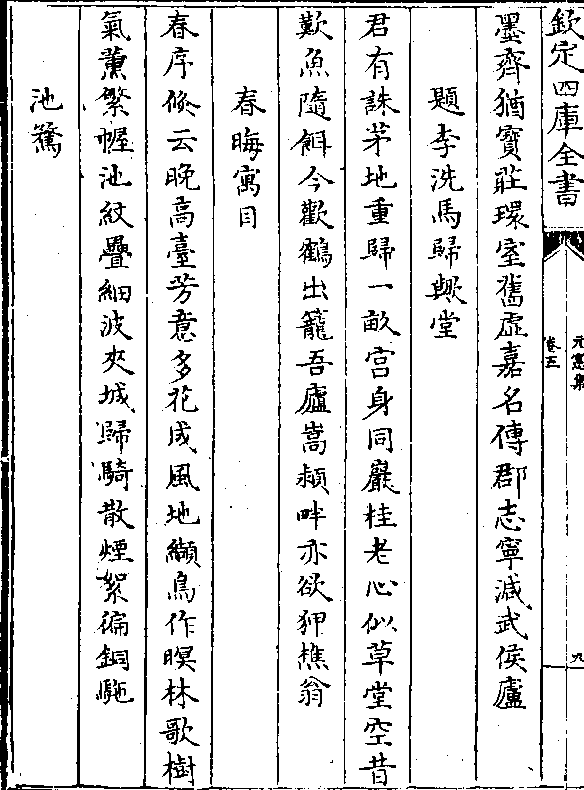 欽定四庫全書
元憲集
卷五
九
墨齊猶寶莊環室舊虛嘉名傳郡志寧減武侯廬
題李洗馬歸歟堂
君有誅茅地重歸一畝宫身同巖桂老心似草堂空昔
歎魚隨餌今歡鶴出籠吾廬嵩潁畔亦欲狎樵翁
春晦寓目
春序倐云晚高臺芳意多花成風地纈鳥作暝林歌樹
氣薫繁幄池紋疊細波夾城歸騎散煙絮徧銅駞
池鷺